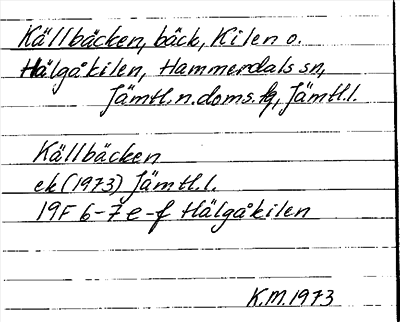 Källbäcken, bäck, Kilen o.
Hälgåkilen, Hammerdals sn,
Jämtl.n.doms.fg, Jämtl.l.
Källbäcken
ek (1973) Jämtl.l.
19F 6-7 e-f Hälgåkilen
K.M.1973